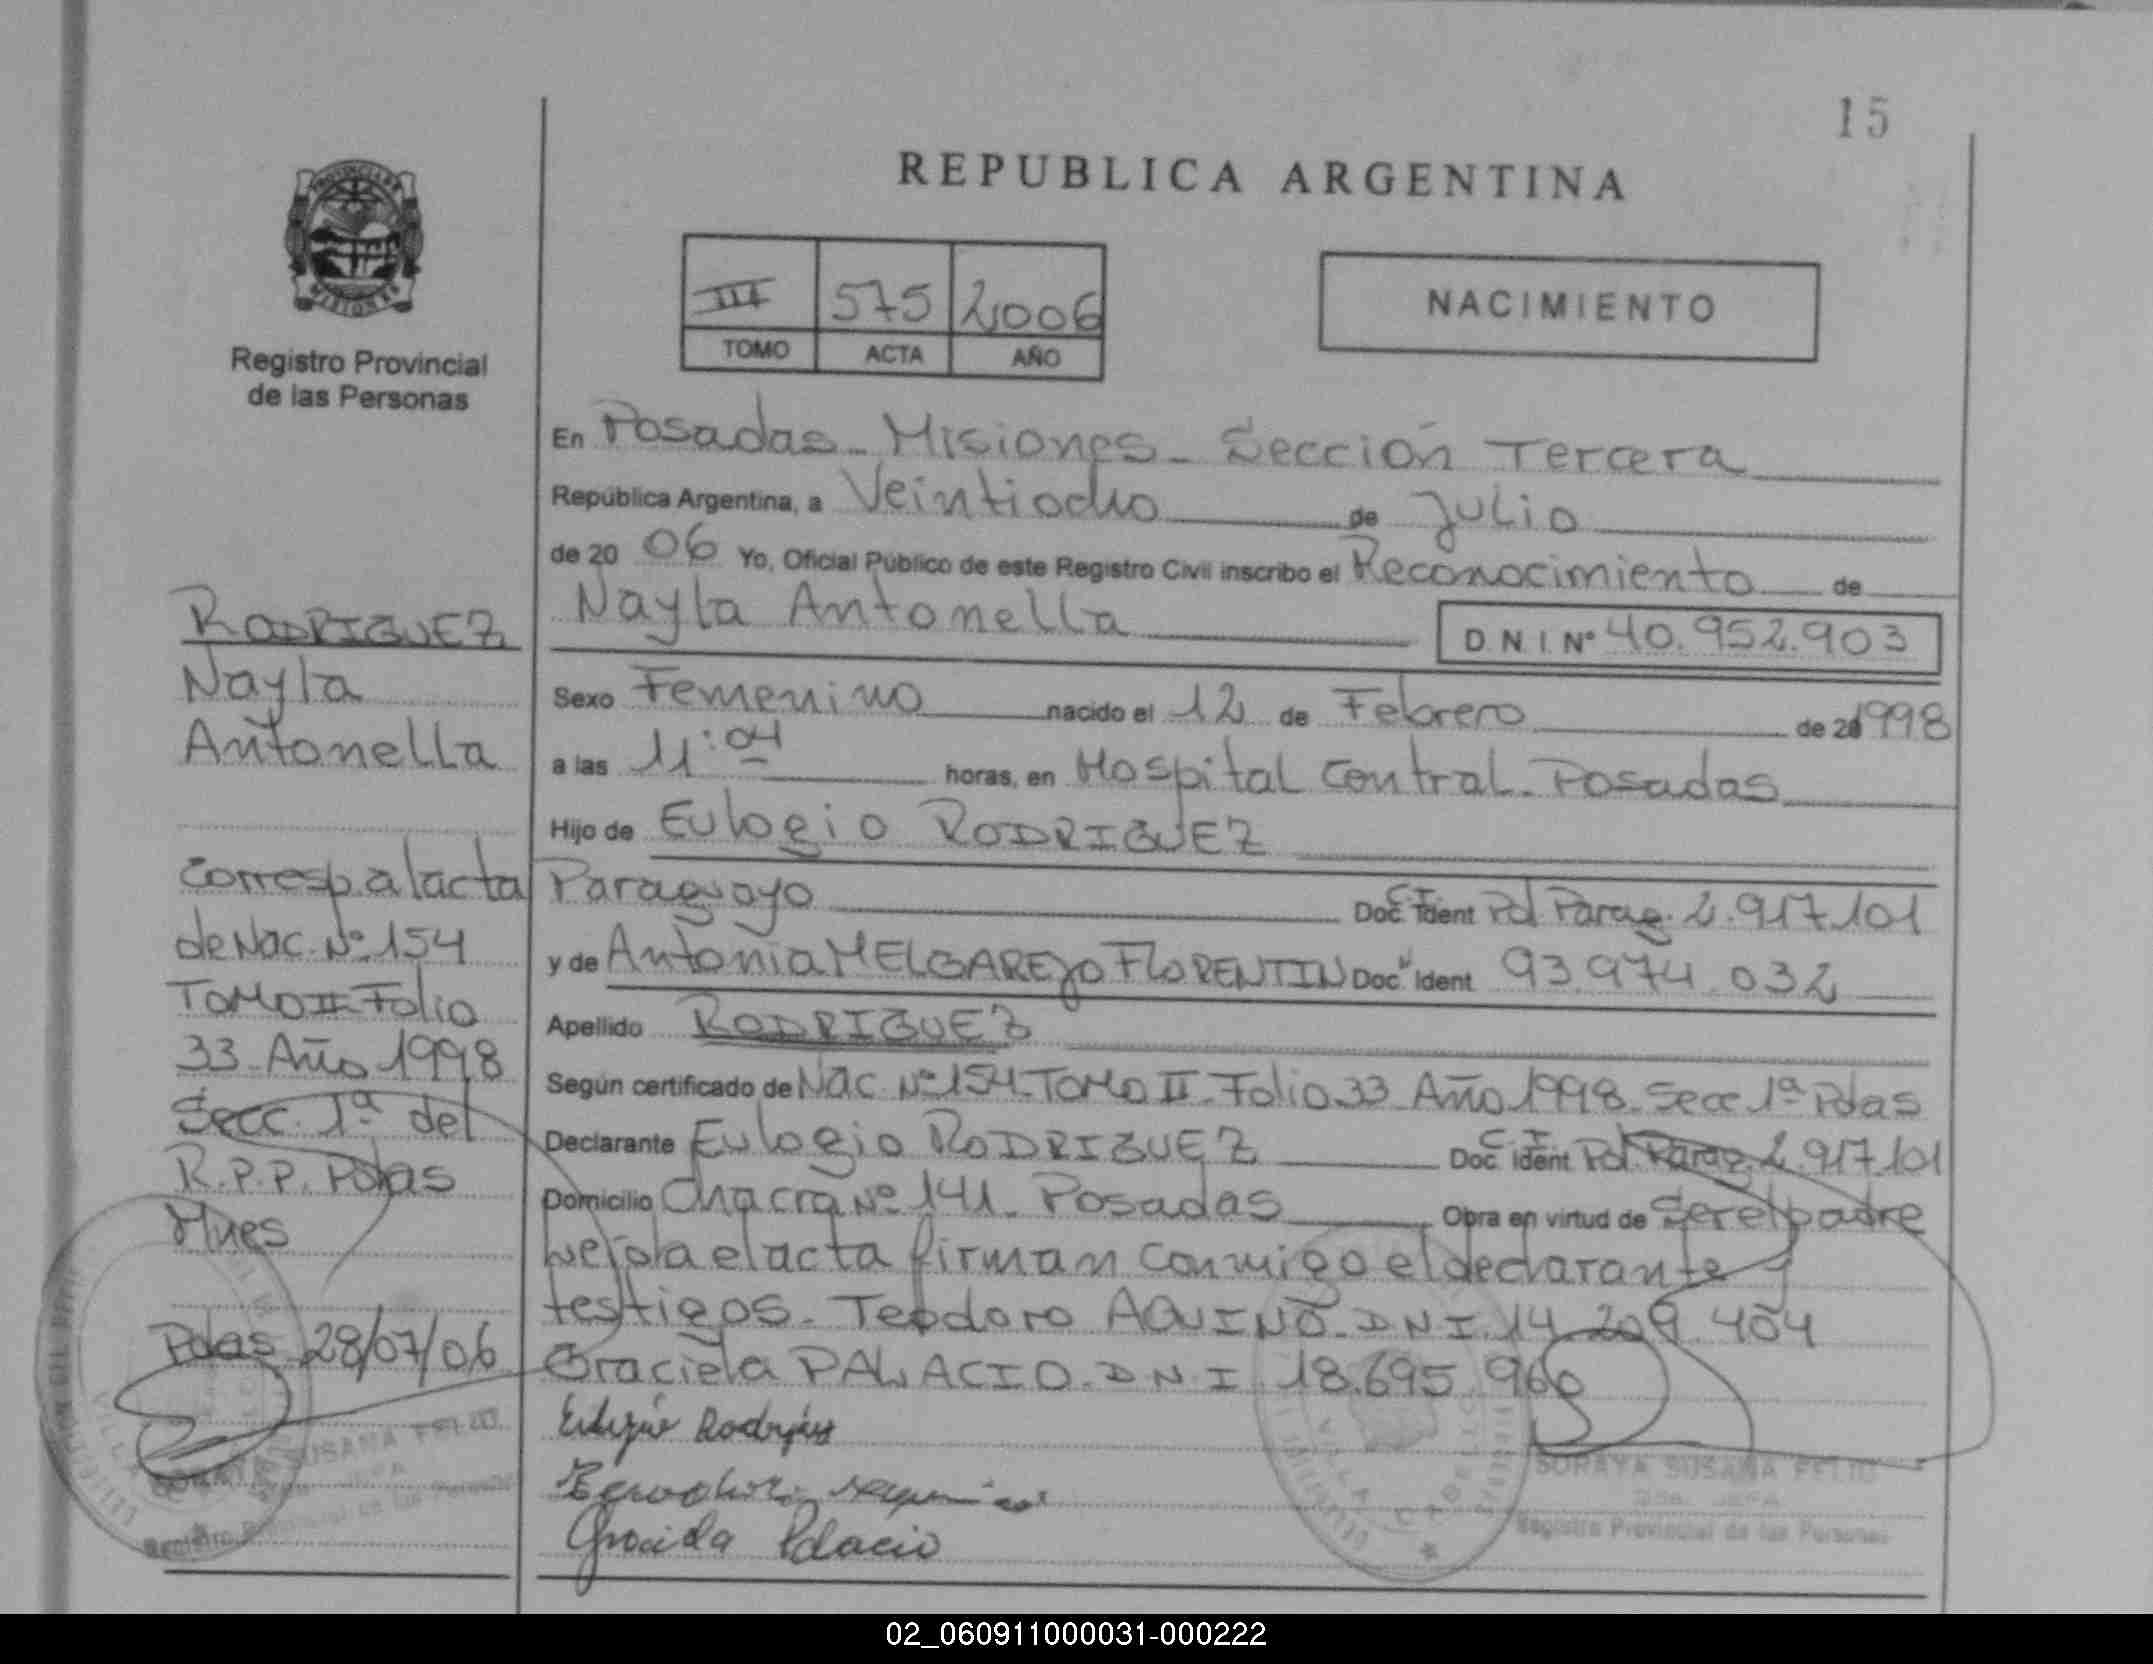 15
REPUBLICA ARGENTINA
PROVINCIA DE
MISIONES
Registro Provincial
de las Personas
III 575 2006
TOMO ACTA AÑO
NACIMIENTO
RODRIGUEZ
Nayla
Antonella
Corresp. al acta
de Nac. Nº 154
TOMO II Folio
33 Año 1998
Secc. 1ª del
R.P.P. Pdas
Mnes
Pdas 28/07/06
En Posadas - Misiones - Sección Tercera
República Argentina, a Veintiocho de Julio
de 20 06 Yo, Oficial Público de este Registro Civil inscribo el Reconocimiento de
Nayla Antonella D.N.I. Nº 40.952.903
Sexo Femenino nacido el 12 de Febrero de 20 1998
a las 11:04 horas, en Hospital Central - Posadas
Hijo de Eulogio RODRIGUEZ
Paraguayo Doc. Ident C.I. Pol Parag. 2.917.101
y de Antonia MELGAREJO FLORENTIN Doc. Ident 93.974.032
Apellido RODRIGUEZ
Según certificado de Nac. Nº 154 - TOMO II - Folio 33 Año 1998 - Secc 1ª Pdas
Declarante Eulogio RODRIGUEZ Doc. Ident C.I. Pol. Parag. 2.917.101
Domicilio Chacra Nº 141 - Posadas Obra en virtud de Ser el padre
leída el acta firman conmigo el declarante y
testigos - Teodoro AQUINO - DNI. 14.209.404
Graciela PALACIO - D.N.I. 18.695.966
Eulogio Rodriguez
Graciela Palacio
SORAYA SUSANA FELIU
JEFA
Registro Provincial de las Personas
SORAYA SUSANA FELIU
JEFA
Registro Provincial de las Personas
02_060911000031-000222